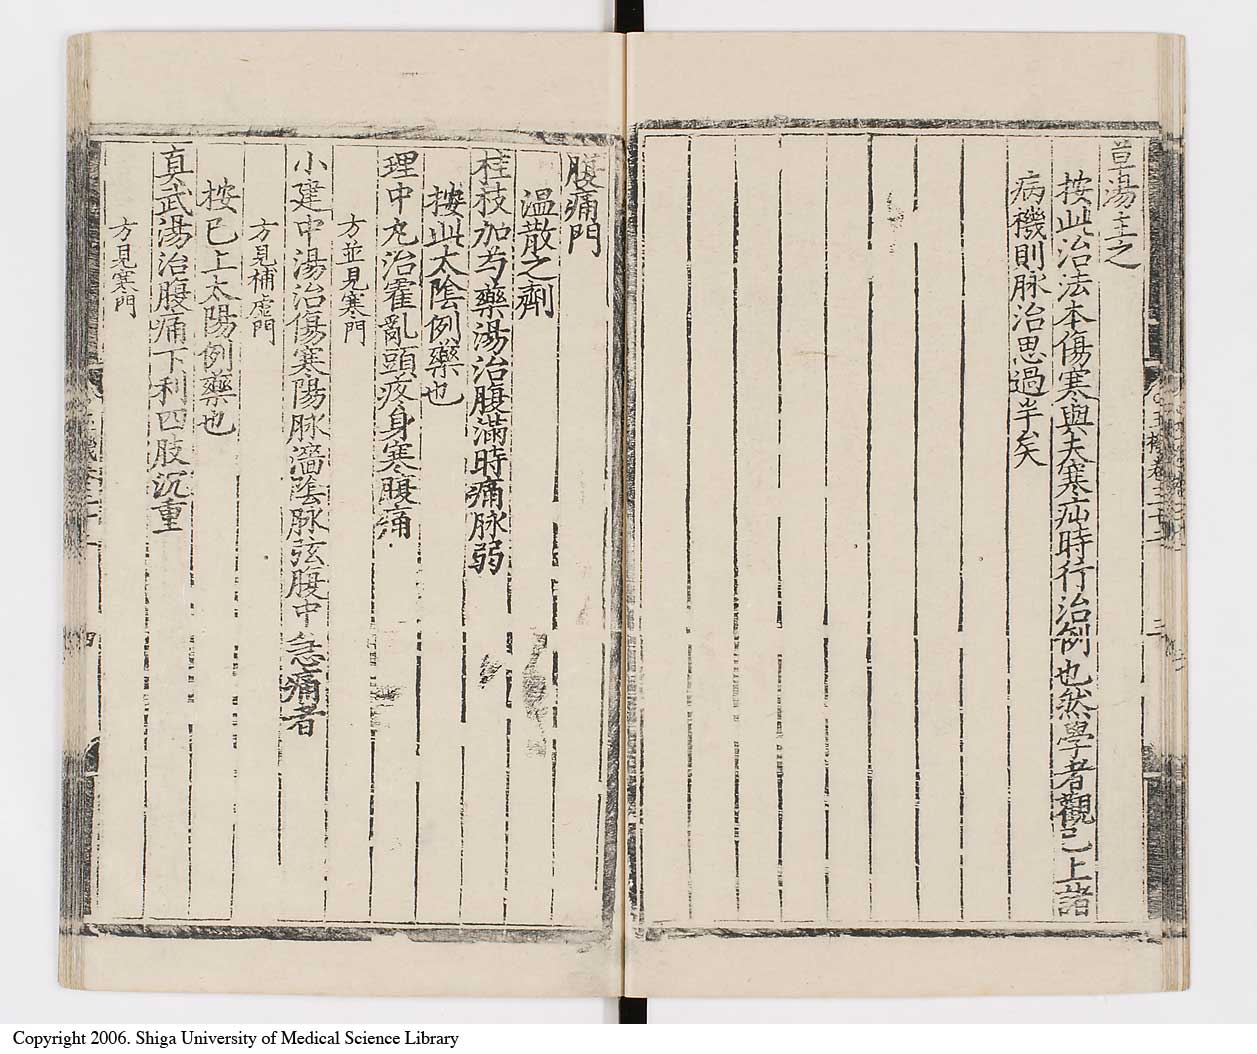 草湯主之
按此治法本傷寒與夫寒疝時行治例也然學者觀已上諸
病機則脉治思過半矣
腹痛門
温散之劑
桂枝加芍藥湯治腹滿時痛脉弱
按此太陰例藥也
理中丸治霍亂頭疼身寒腹痛
方並見寒門
小建中湯治傷寒陽脉濇陰脉弦腹中急痛者
方見補虛門
按已上太陽例藥也
真武湯治腹痛下利四肢沉重
方見寒門
四
Copyright 2006. Shiga University of Medical Science Library